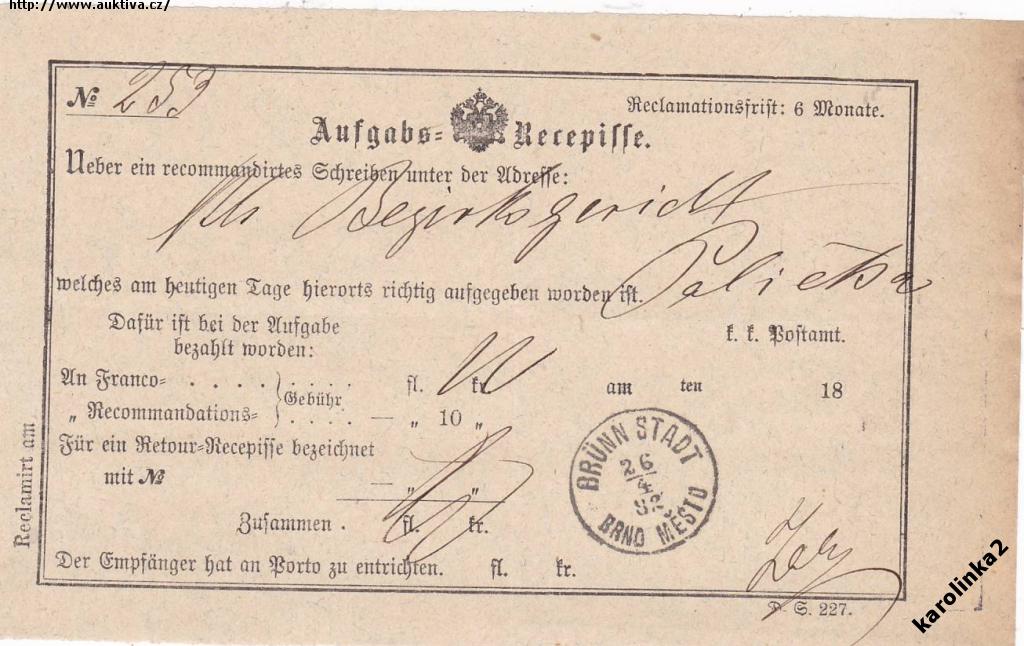 http://www.auktiva.cz/
№ 253
Reclamationsfrist: 6 Monate.
Aufgabs-Recepisse.
Ueber ein recommandirtes Schreiben unter der Adresse:
Bezirksgericht
Policka
welches am heutigen Tage hierorts richtig aufgegeben worden ist.
Dafür ist bei der Aufgabe
bezahlt worden:
k. k. Postamt.
An Franco- . . . . . . . . fl. kr.
am ten 18
„ Recommandations- Gebühr . . . . — „ 10 „
Für ein Retour-Recepisse bezeichnet
mit № — „ „
BRÜNN STADT
BRNO MĚSTO
Zusammen . fl. kr.
Der Empfänger hat an Porto zu entrichten. fl. kr.
Reclamirt am
D. S. 227.
karolinka2